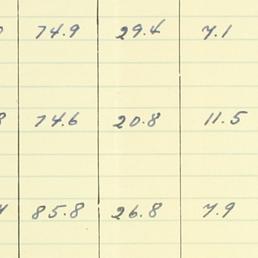 74.9 29.4 7.1
8 74.6 20.8 11.5
85.8 26.8 7.9